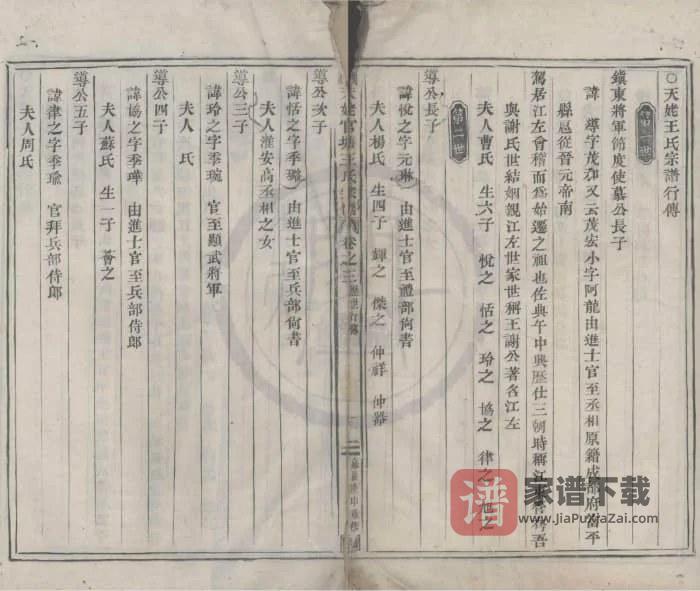 ○天姥王氏宗譜行傳
第一世
鎭東將軍節度使基公長子
諱 導字茂和又云茂宏小字阿龍由進士官至丞相原籍成都府富平
縣扈從晉元帝南
駕居江左會稽而爲始遷之祖也佐典午中興歷仕三朝時稱江東有夷吾
與謝氏世結姻親江左世家世稱王謝公著名江左
夫人曹氏 生六子 悅之 恬之 玲之 協之 律之 旭之
第二世
導公長子
諱悅之字元琳 由進士官至禮部尙書
夫人楊氏 生四子 輝之 傑之 仲祥 仲器
天姥官塘王氏宗譜 卷之三 歷世行傳
二
導公次子
諱恬之字季璐 由進士官至兵部尙書
夫人淮安高丞相之女
導公三子
諱玲之字季琬 官至顯武將軍
夫人 氏
導公四子
諱協之字季瑋 由進士官至兵部侍郎
夫人蘇氏 生一子 薈之
導公五子
諱律之字季瑜 官拜兵部侍郎
夫人周氏
譜
家谱下载
www.JiaPuXiaZai.com